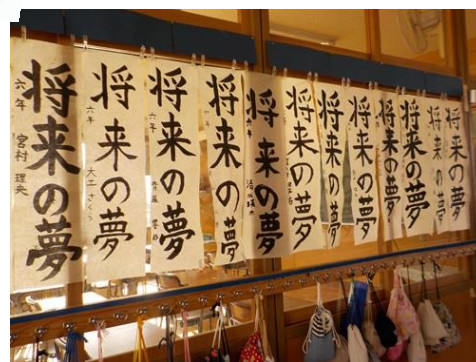 将来の夢
六年 宮村 理央
将来の夢
六年 大工 さくら
将来の夢
六年
将来の夢
将来の夢
六年
将来の夢
将来の夢
将来の夢
将来の夢
将来の夢
将来の夢
将来の夢